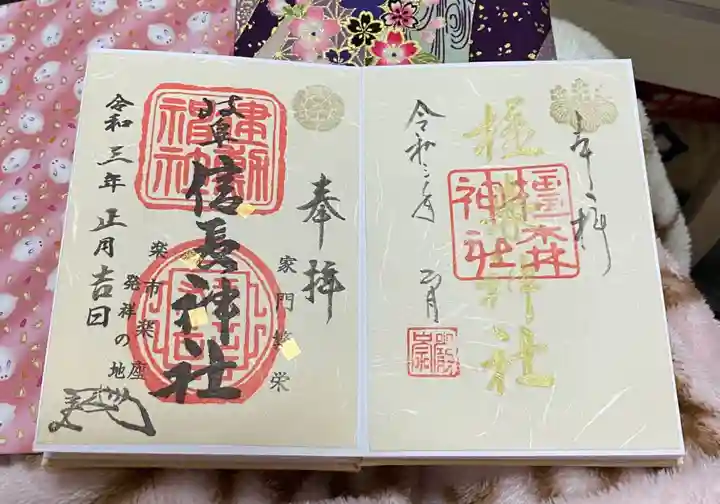 奉拝
岐阜
信長神社
家門繁栄
楽市楽座
発祥の地
令和三年正月吉日
建勲
神社
奉拝
橿森神社
橿森
神社
令和三年
正月